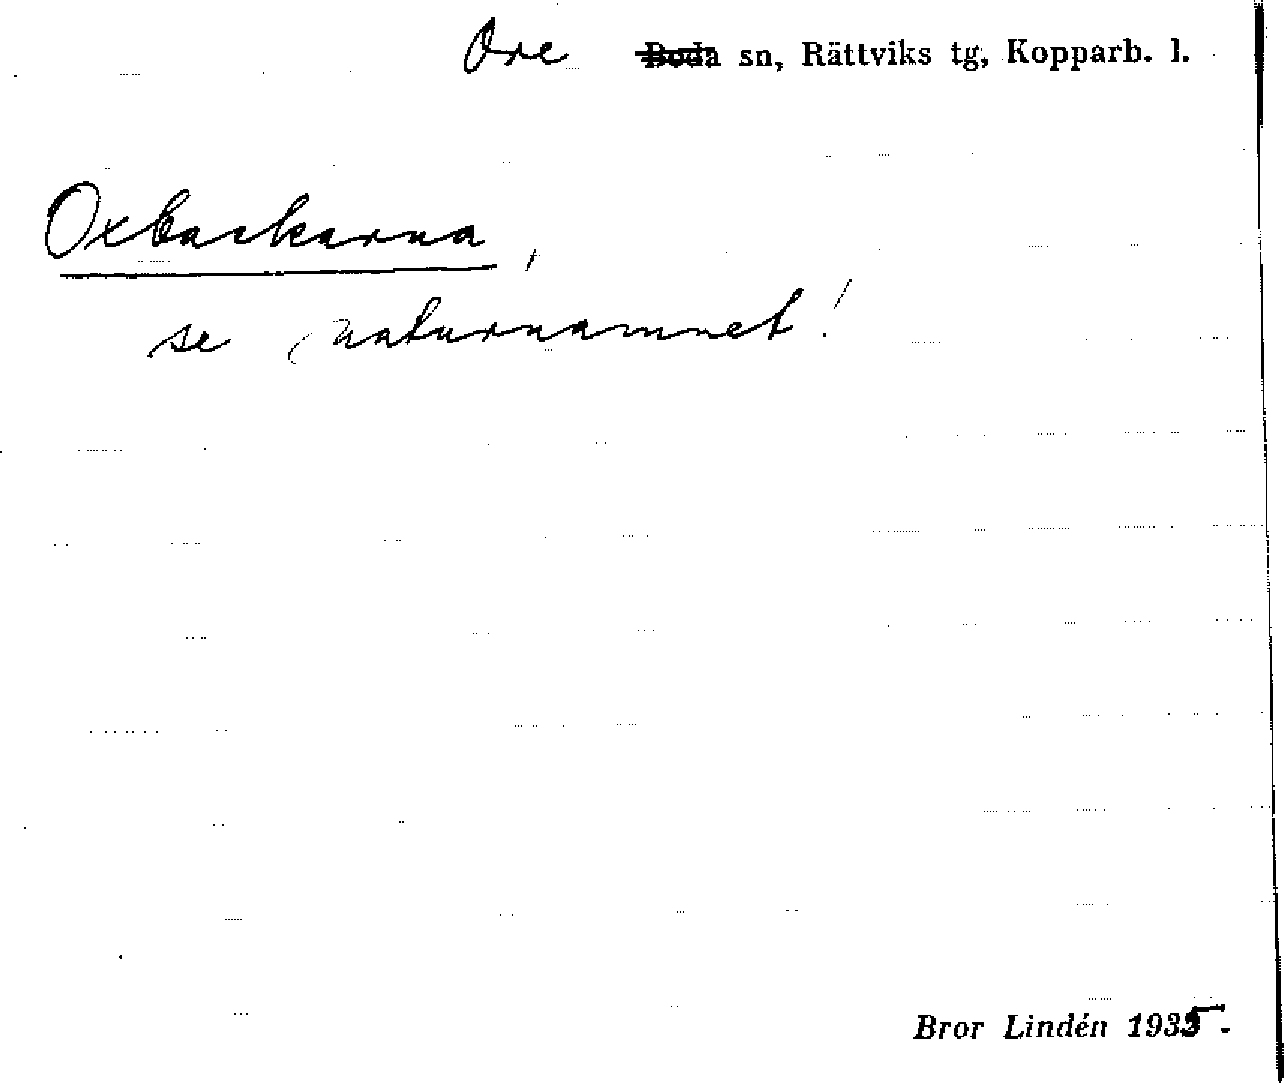 Ore Boda sn, Rättviks tg, Kopparb. l.
Oxbackarna,
se naturnamnet!
Bror Lindén 1935.